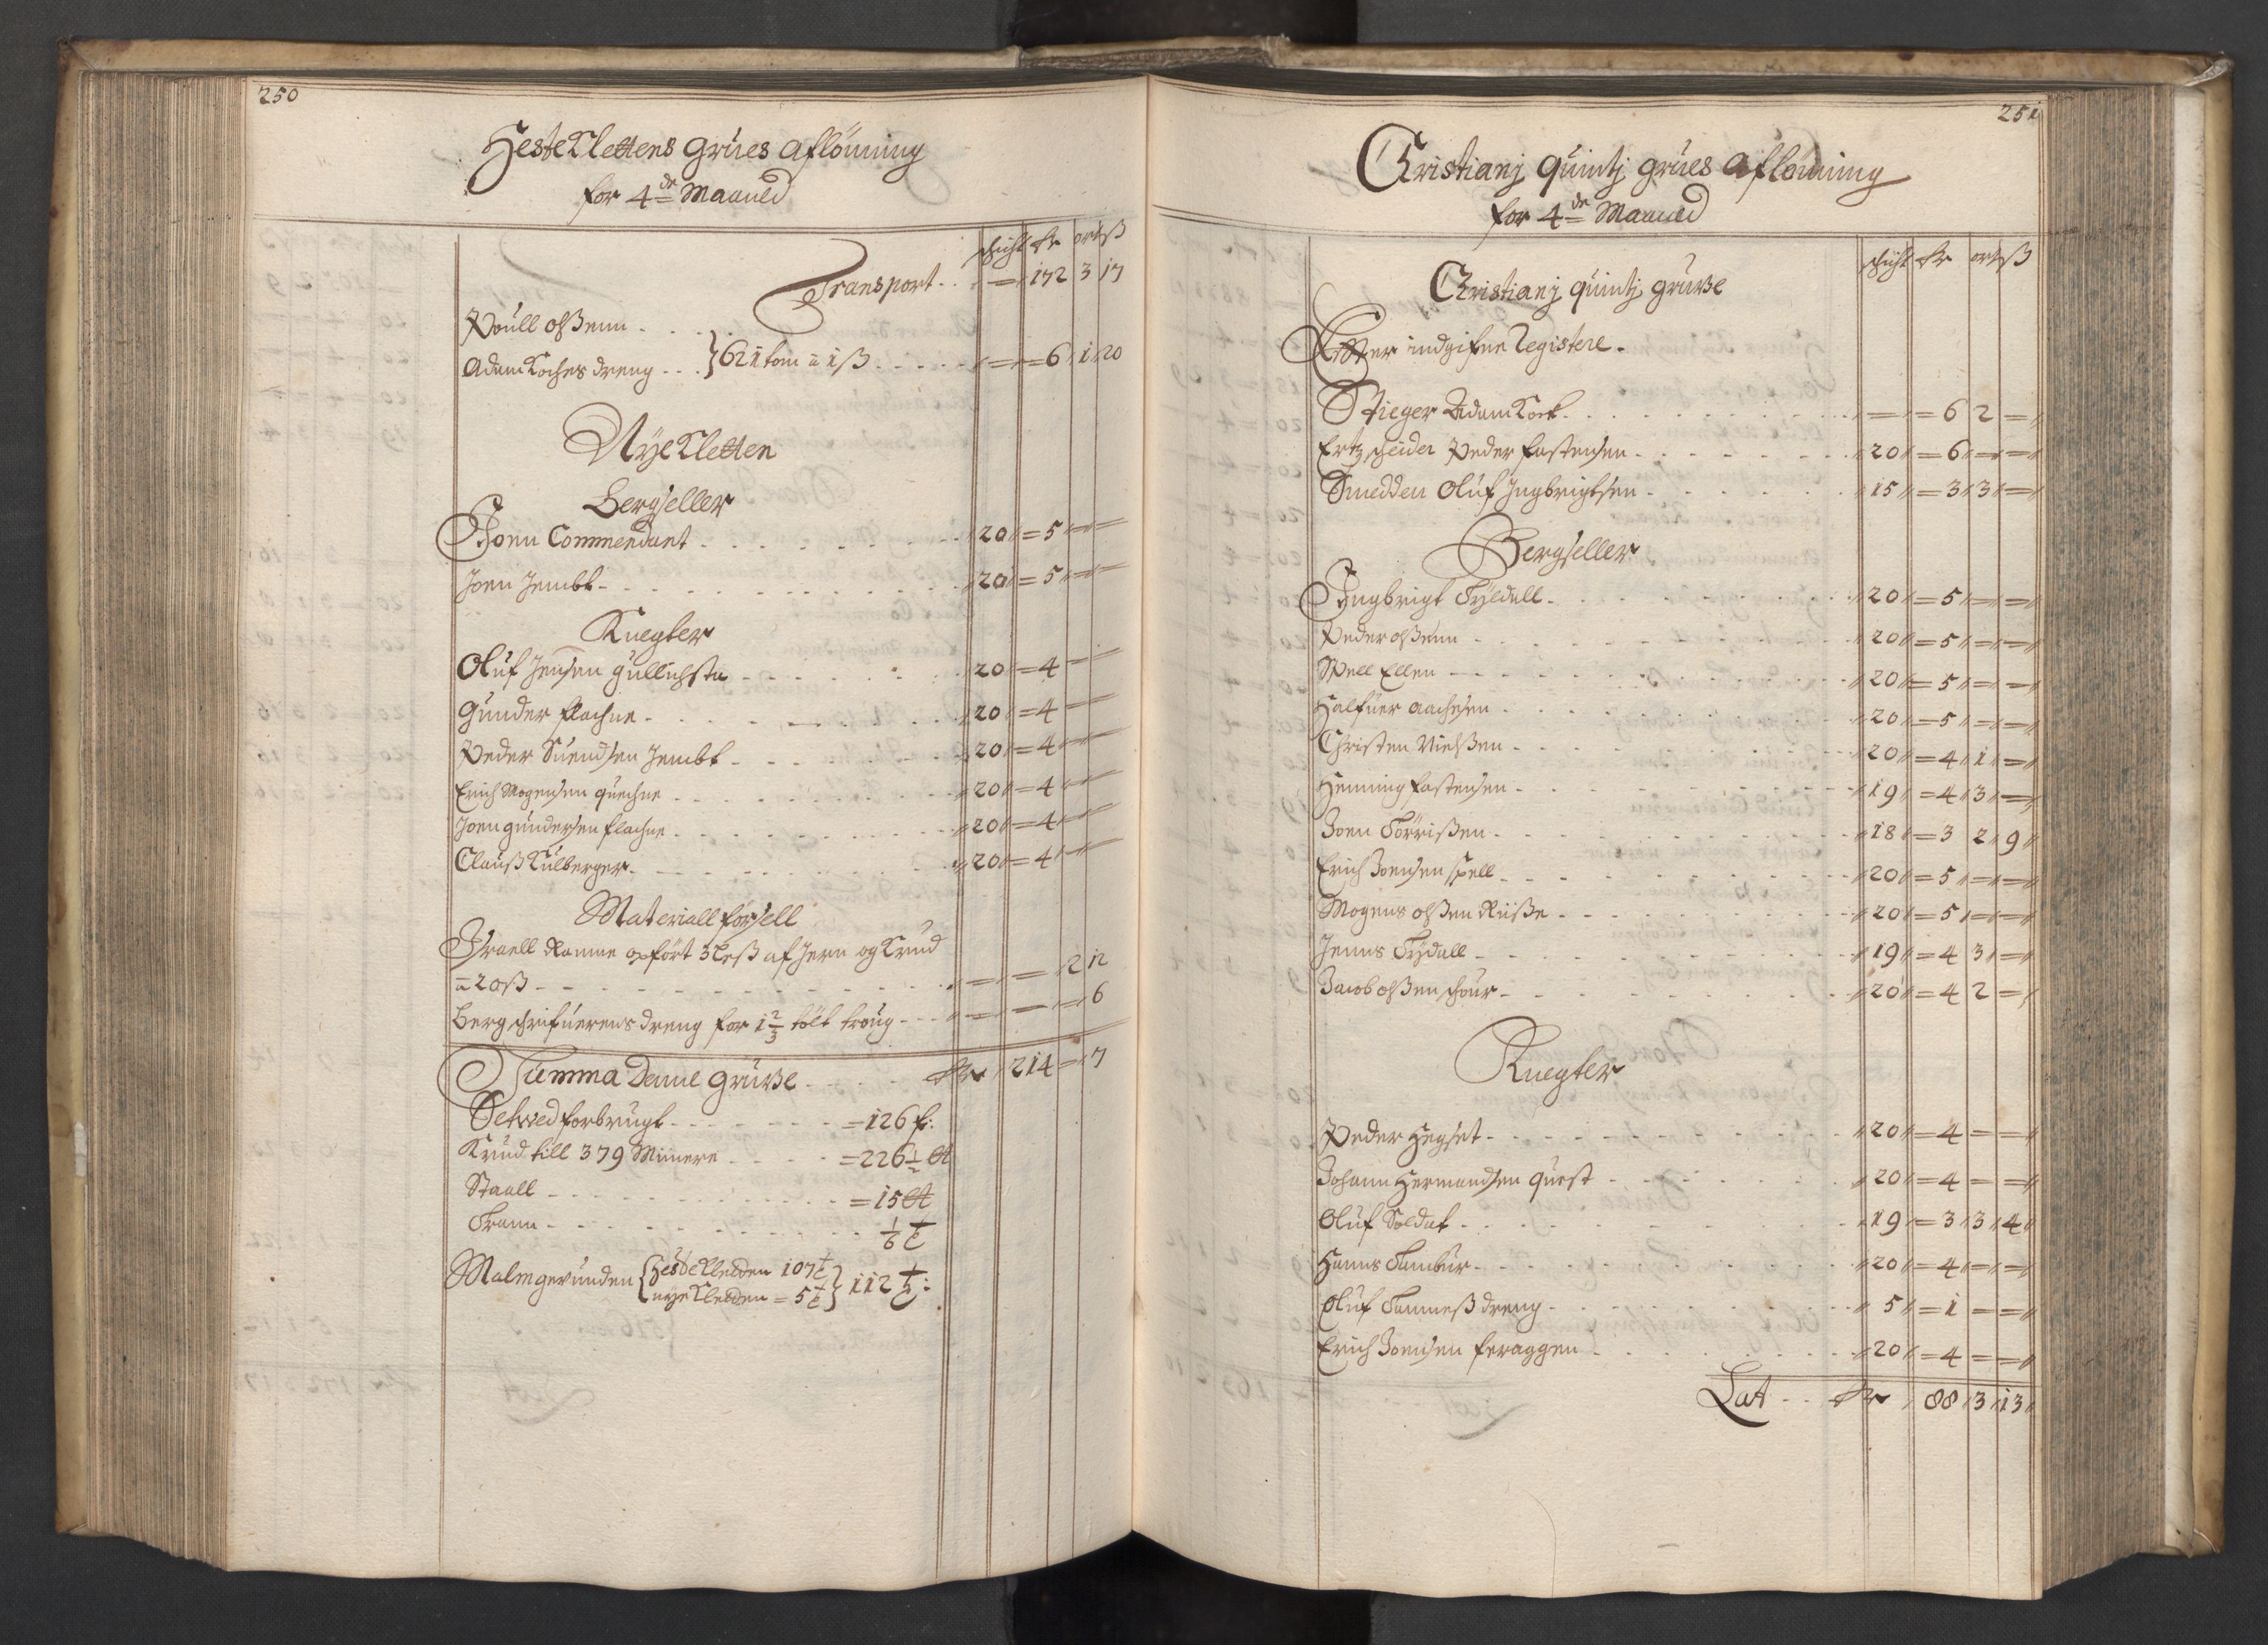 250
HesteKlettens Grues Aflönning
for 4de Maaned
schicht Rr ort ß
Transport - - = 172 3 17
Poull Olßenn - - -
Adam Koches dreng - - } 621 tom a 1 ß - - - = = 6 1 20
Nye Kletten
Bergseller
Joen Commendant - - - 20 = 5 = =
Joen Jembt - - - 20 = 5 = =
Knegter
Oluf Jensen Gullichsta - - - 20 = 4 = =
Gunder Flachne - - - 20 = 4 = =
Peder Suendsen Jembt - - - 20 = 4 = =
Erich Mogensen Quechne - - - 20 = 4 = =
Joen Gundersen Flachne - - - 20 = 4 = =
Clauß Kulberger - - - 20 = 4 = =
Materiall förßell
Israell Ramme opfört 3 Leß af Jern og Krud
a 20 ß - - - = = 2 12
Bergschrifuerens dreng for 1 2/3 tölt troug - - - = = = 6
Summa Denne Gruße - - - Rr 214 = 17
Setved forbrugt - - - = 126 f:
Krud till 379 Minnere - - - = 226 1/2 ℔
Staall - - - = 15 ℔
Trann - - - 1/6 t
Malm gevunden { HesteKledden 107 t
nye Kledden = 5 t } 112 t:
251
Christianj Quintj Grues Aflönning
for 4de Maaned
schicht Rr ort ß
Christianj Quintj Gruße
Efter indgifne Registere.
Stieger Adam Koch - - - = = 6 2 =
Ertzscheider Peder Fastensen - - - 20 = 6 = =
Smedden Oluf Ingbrigtsen - - - 15 = 3 3 =
Bergseller
Ingbrigt Tyldall - - - 20 = 5 = =
Peder Olßenn - - - 20 = 5 = =
Spell Ellen - - - 20 = 5 = =
Halfuer Aachesen - - - 20 = 5 = =
Christen Nielßen - - - 20 = 4 1 =
Henning Fastensen - - - 19 = 4 3 =
Joen Törrißen - - - 18 = 3 2 9
Erich Joensen Spell - - - 20 = 5 = =
Mogens Olßen Riiße - - - 20 = 5 = =
Jenns Tydall - - - 19 = 4 3 =
Jacob Olßen schour - - - 20 = 4 2 =
Knegter
Peder Hegset - - - 20 = 4 = =
Johann Hermandsen Quest - - - 20 = 4 = =
Oluf Soldat - - - 19 = 3 3 4
Hanns Tambur - - - 20 = 4 = =
Oluf Tammeß dreng - - - 5 = 1 = =
Erich Joensen Feraggen - - - 20 = 4 = =
Lat - - Rr 88 3 13